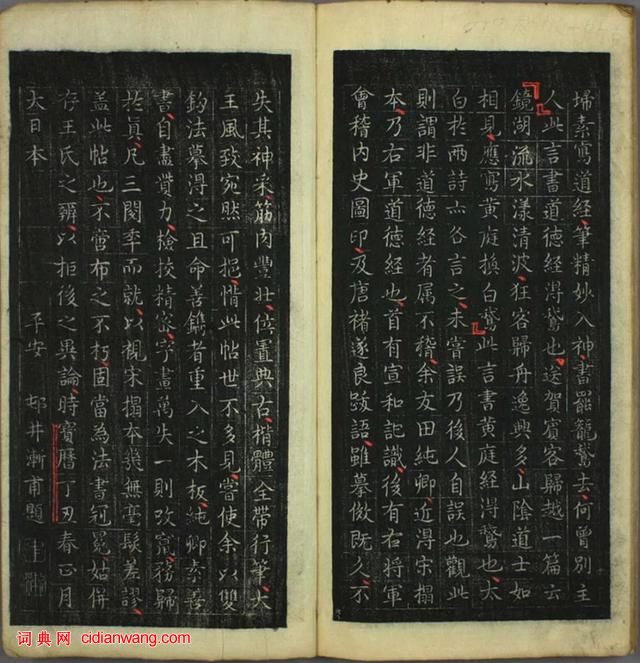 埽素寫道經筆精妙入神書罷籠鵞去何曾別主
人此言書道德經淂鵞也送賀賓客歸越一篇云
鏡湖流水漾清波狂客歸舟逸興多山陰道士如
相見應寫黄庭換白鵞此言書黄庭經淂鵞也太
白扵兩詩亦各言之未嘗誤乃後人自誤也觀此
則謂非道德經者属不稽余友田純卿近淂宋搨
本乃右軍道德經也首有宣和記識後有右将軍
會稽内史圖印及唐褚遂良跋語雖摹倣既久不
失其神采筋肉豐壮位置典古楷體全帶行筆大
王風致宛然可挹惜此帖世不多見嘗使余以雙
鈎法摹淂之且命善鐫者重入之木板純卿素善
書自盡覺力撿挍精密字畫萬失一則改竄務歸
扵真凡三閱季而就以視宋搨本幾無毫髮差謬
盖此帖也不啻布之不朽固當為法書冠冕姑併
存王氏之辨以拒後之異論時寶曆丁丑春正月
大日本
平安 邨井漸甫題
词典网 cidianwang.com